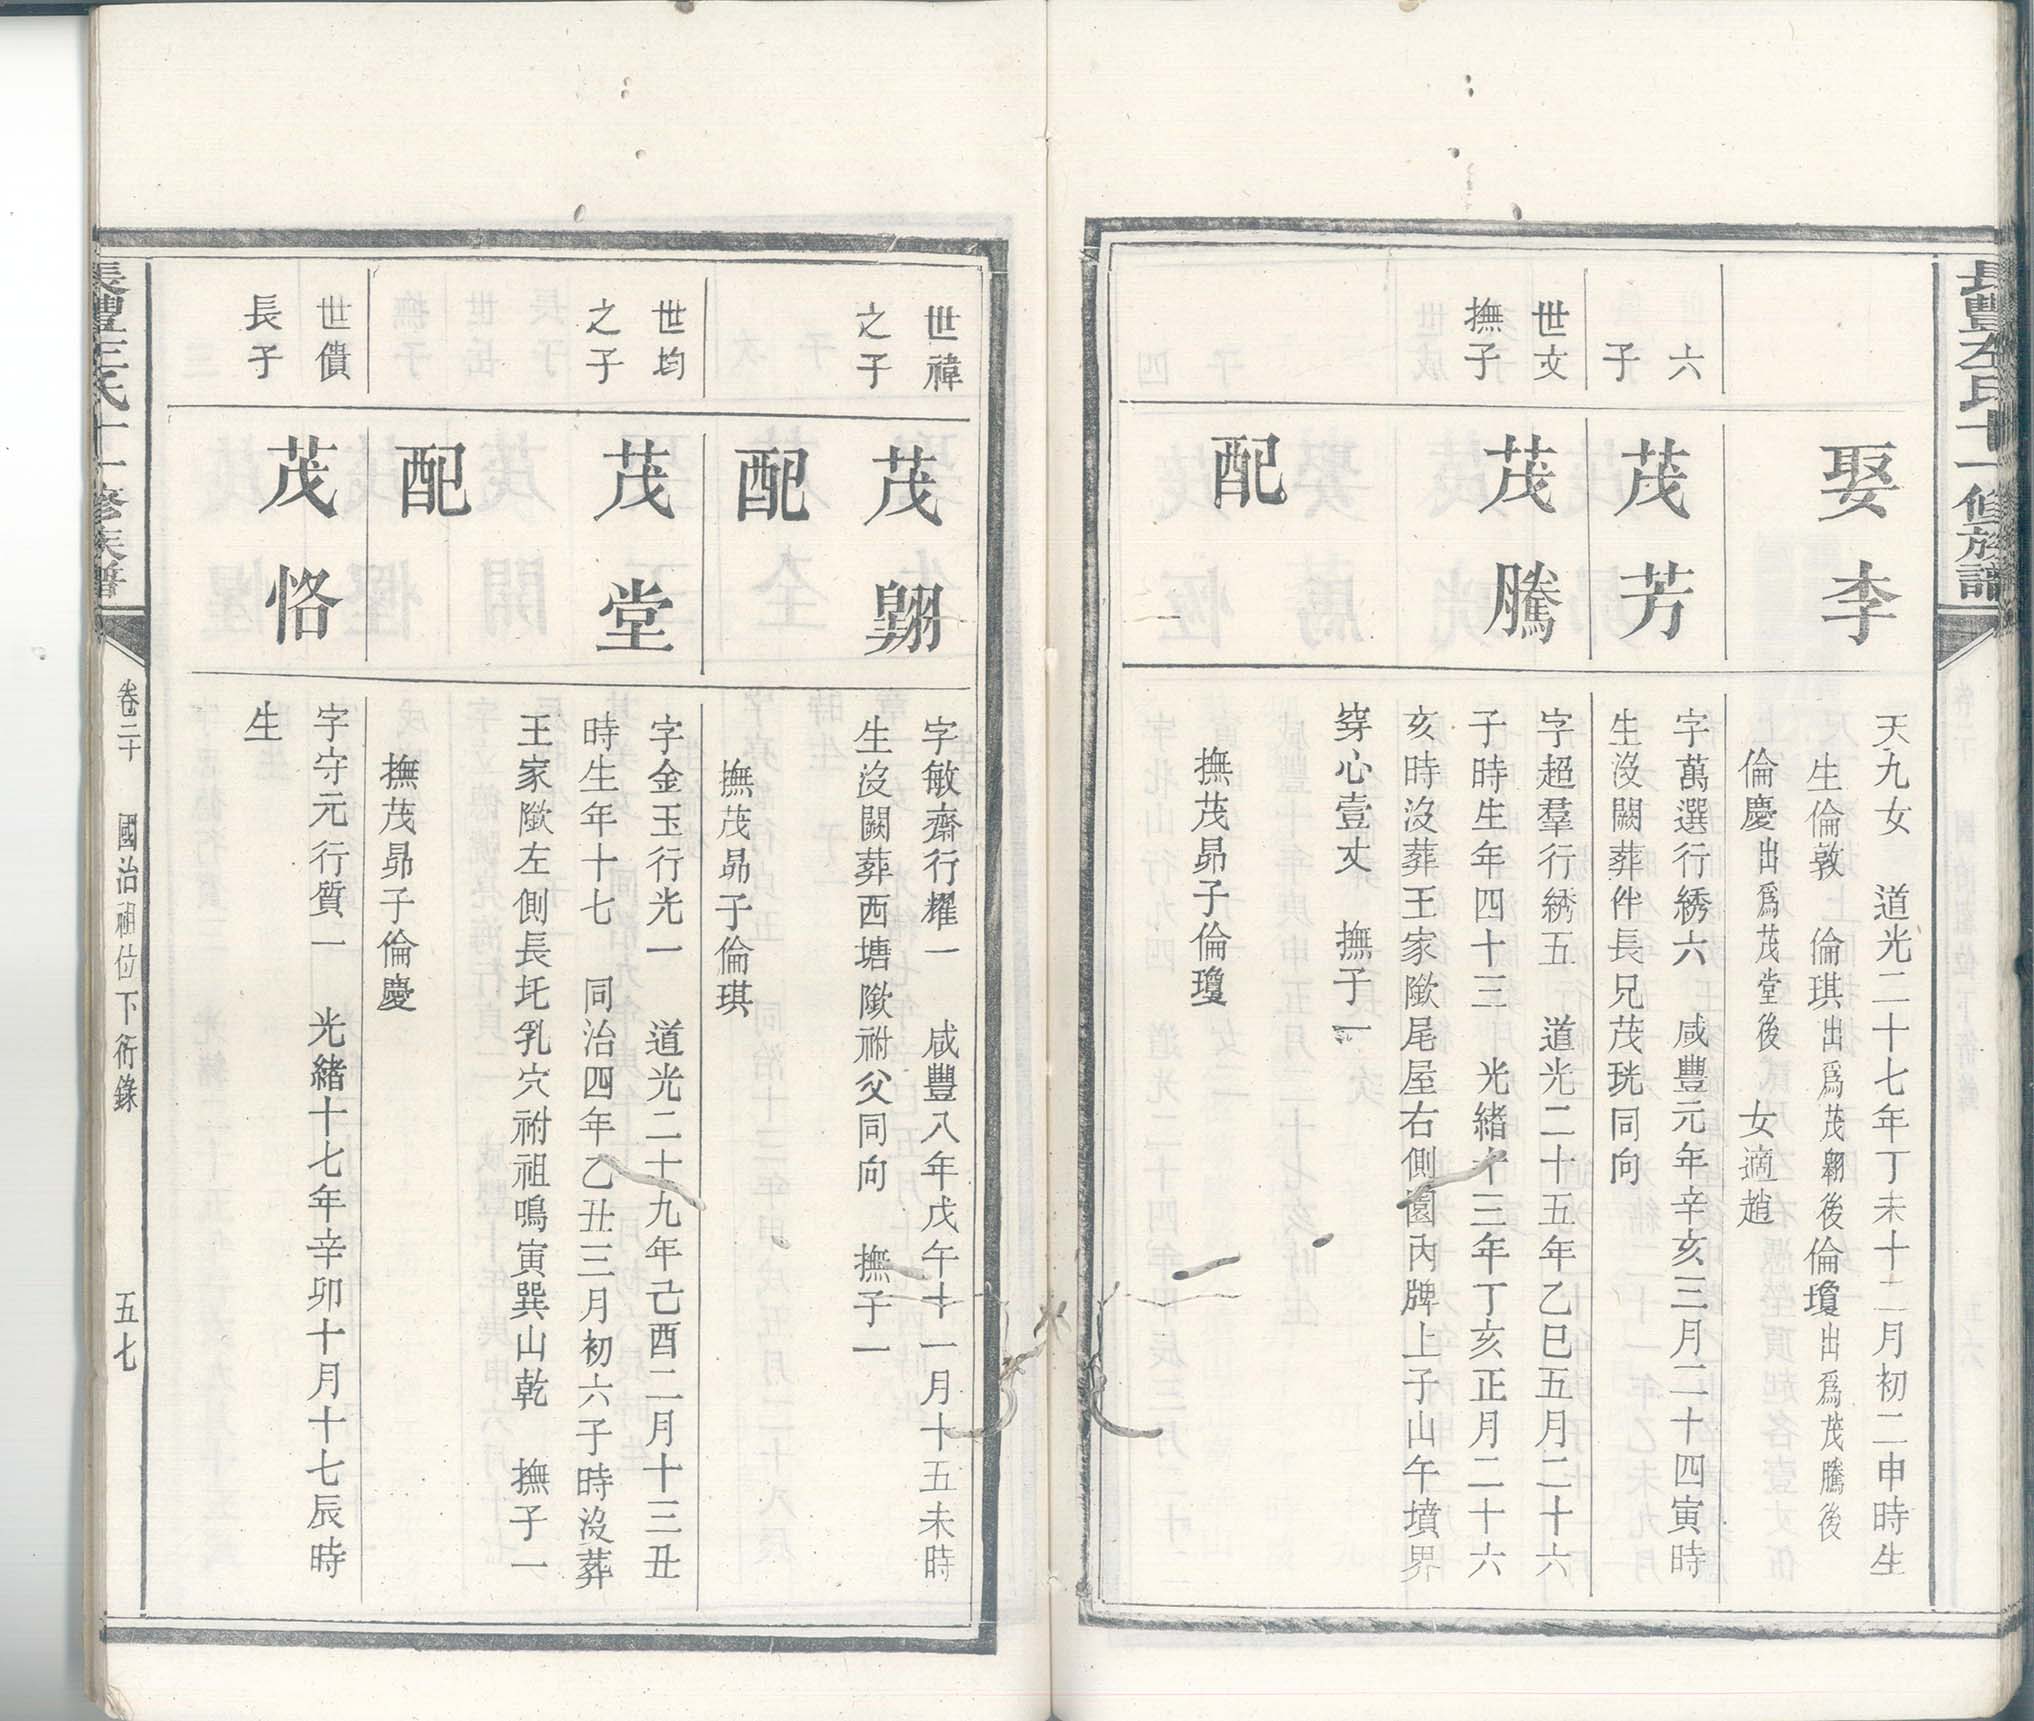 長豐左氏十一修族譜
娶李
天九女 道光二十七年丁未十二月初二申時生
生倫敦 倫琪出爲茂翱後倫瓊出爲茂騰後
倫慶出爲茂堂後 女適趙
六
子
茂芳
字萬選行綉六 咸豐元年辛亥三月二十四寅時
生沒闕葬伴長兄茂珖同向
世文
撫子
茂騰
字超羣行綉五 道光二十五年乙巳五月二十六
子時生年四十三 光緒十三年丁亥正月二十六
亥時沒葬王家隞尾屋右側園內牌上子山午墳界
穿心壹丈 撫子一
配
撫茂昴子倫瓊
世禕
之子
茂翱
字敏齋行燿一 咸豐八年戊午十一月十五未時
生沒闕葬西塘隞祔父同向 撫子一
配
撫茂昴子倫琪
世均
之子
茂堂
字金玉行光一 道光二十九年己酉二月十三丑
時生年十七 同治四年乙丑三月初六子時沒葬
王家隞左側長坵乳穴祔祖鳴寅巽山乾 撫子一
配
撫茂昴子倫慶
世債
長子
茂恪
字守元行質一 光緒十七年辛卯十月十七辰時
生
卷二十 國治祖位下衍錄 五七